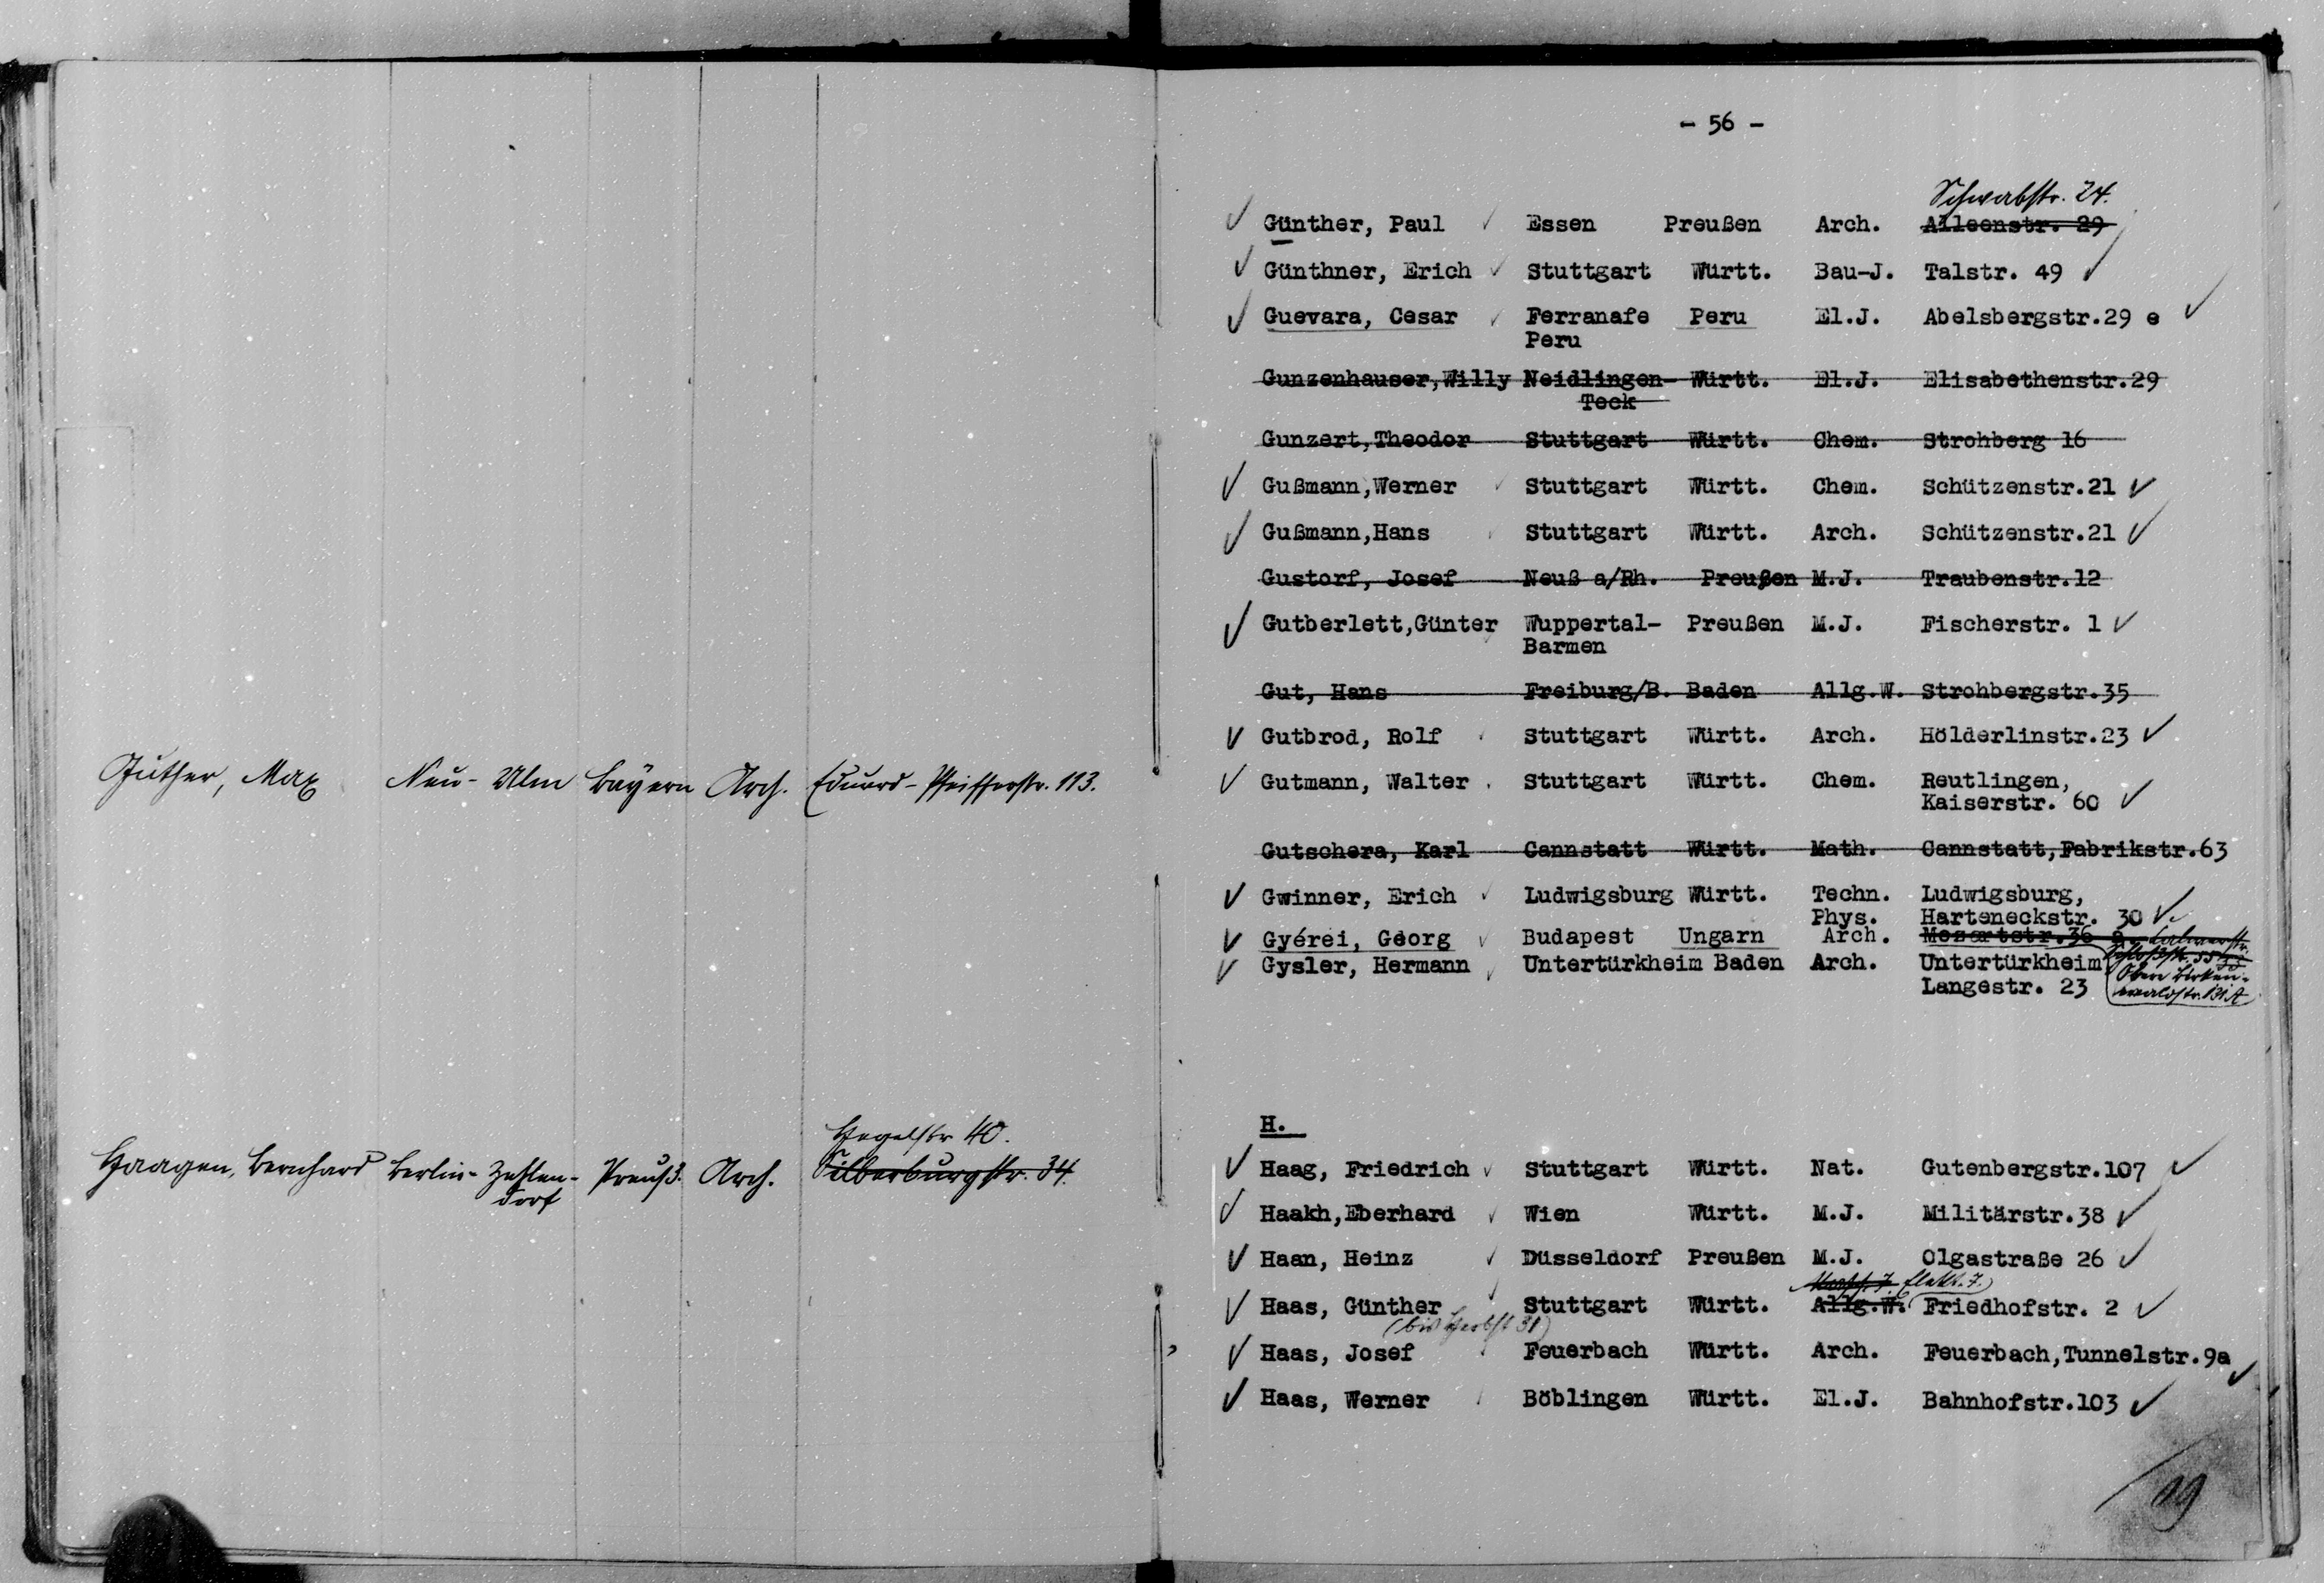 Guther, Max Neu-Ulm Bayern Arch. Eduard-Pfeifferstr. 113.
Hegelstr 40.
Haagen, Bernhard Berlin-Zehlen- Preuß. Arch. Silberburgstr. 34.
dorf
- 56 -
Schwabstr. 24.
Günther, Paul Essen Preußen Arch. Alleenstr. 29
Günthner, Erich Stuttgart Württ. Bau-J. Talstr. 49
Guevara, Cesar Ferranafe Peru El.J. Abelsbergstr.29 e
Peru
Gunzenhauser,Willy Neidlingen- Württ. El.J. Elisabethenstr.29
Teck
Gunzert,Theodor Stuttgart Württ. Chem. Strohberg 16
Gußmann,Werner Stuttgart Württ. Chem. Schützenstr.21
Gußmann,Hans Stuttgart Württ. Arch. Schützenstr.21
Gustorf, Josef Neuß a/Rh. Preußen M.J. Traubenstr.12
Gutberlett,Günter Wuppertal- Preußen M.J. Fischerstr. 1
Barmen
Gut, Hans Freiburg/B. Baden Allg.W. Strohbergstr.35
Gutbrod, Rolf Stuttgart Württ. Arch. Hölderlinstr.23
Gutmann, Walter Stuttgart Württ. Chem. Reutlingen,
Kaiserstr. 60
Gutschera, Karl Cannstatt Württ. Math. Cannstatt,Fabrikstr.63
Gwinner, Erich Ludwigsburg Württ. Techn. Ludwigsburg,
Phys. Harteneckstr. 30
Gyérei, Georg Budapest Ungarn Arch. Mozartstr.36
Gysler, Hermann Untertürkheim Baden Arch. Untertürkheim
Obere Birken-
Langestr. 23 waldstr. 131 A
H.
Haag, Friedrich Stuttgart Württ. Nat. Gutenbergstr.107
Haakh,Eberhard Wien Württ. M.J. Militärstr.38
Haan, Heinz Düsseldorf Preußen M.J. Olgastraße 26
Elektr. J.
Haas, Günther Stuttgart Württ. Allg.W. Friedhofstr. 2
(bis Herbst 31)
Haas, Josef Feuerbach Württ. Arch. Feuerbach,Tunnelstr.9a
Haas, Werner Böblingen Württ. El.J. Bahnhofstr.103